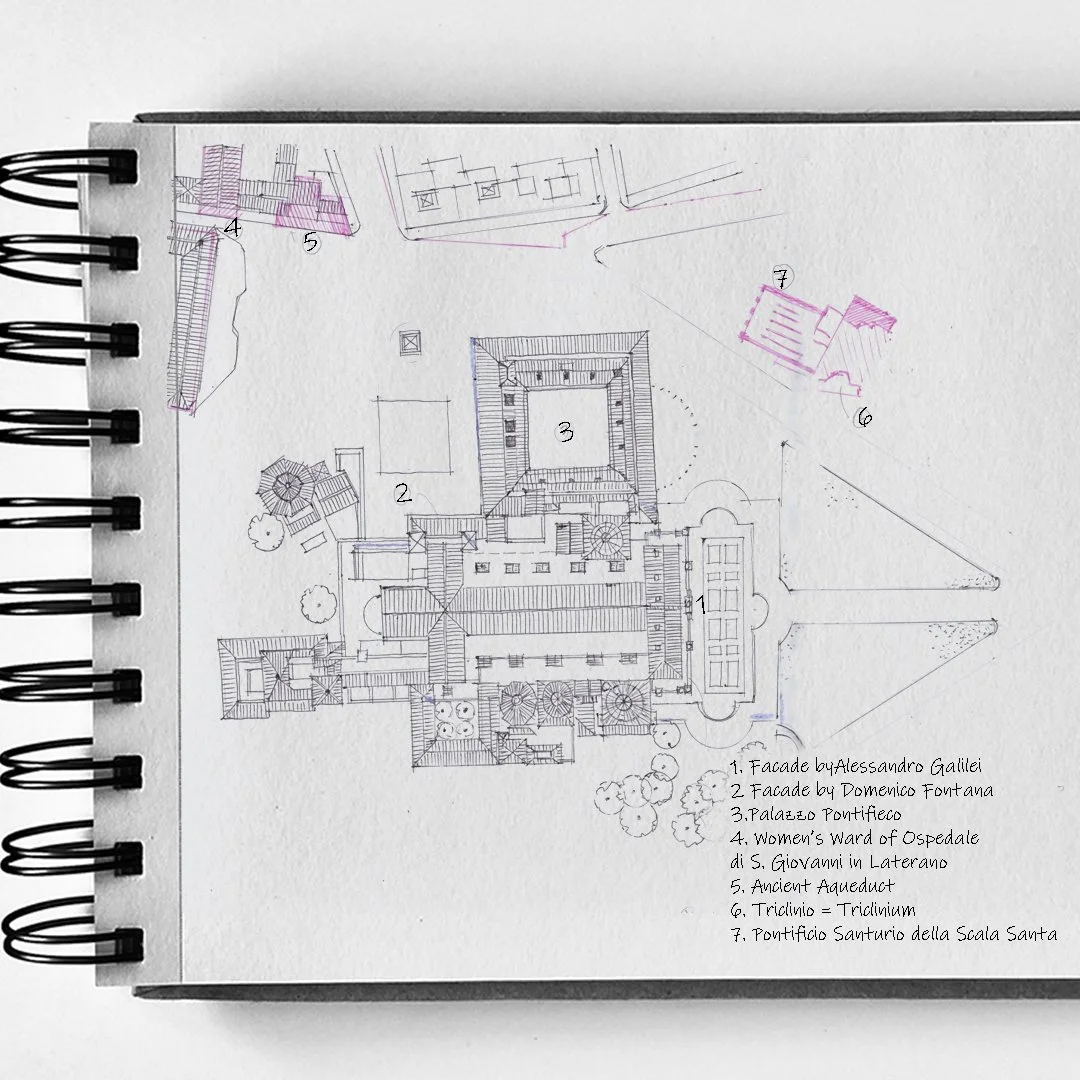 4
5
7
6
3
2
1
1. Facade byAlessandro Galilei
2 Facade by Domenico Fontana
3.Palazzo Pontifieco
4. Women's Ward of Ospedale
di S. Giovanni in Laterano
5. Ancient Aqueduct
6. Triclinio = Triclinium
7. Pontificio Santurio della Scala Santa